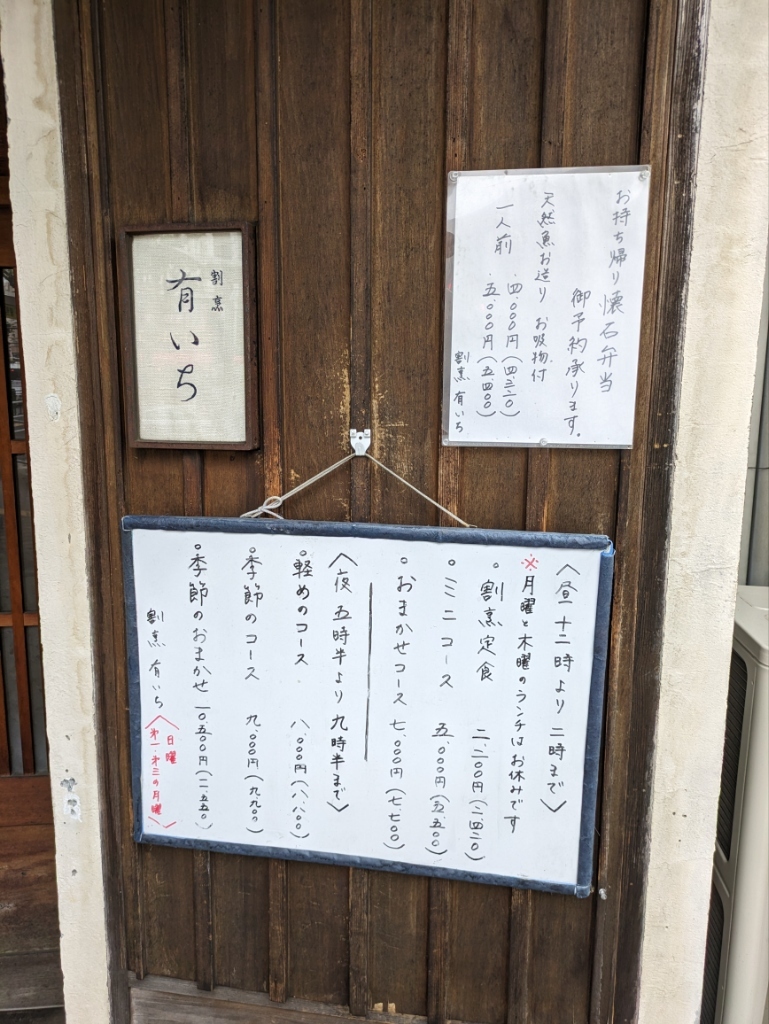 割烹
有いち
お持ち帰り懐石弁当
御予約承ります。
天然魚お造り お吸物付
一人前 .四.000円(四.三二0)
.五.000円(五.四00)
割烹 有いち
〈昼 十二時より 二時まで〉
※月曜と木曜のランチはお休みです
。割烹定食 二.二00円(二.四二0)
。ミニコース 五.000円(五.五00)
。おまかせコース 七.000円(七.七00)
〈夜 五時半より 九時半まで〉
。軽めのコース 八.000円(八.八00)
。季節のコース 九.000円(九.九00)
。季節のおまかせ 一0.五00円(一一.五五0)
割烹 有いち
〈日曜
第一.第三の月曜〉